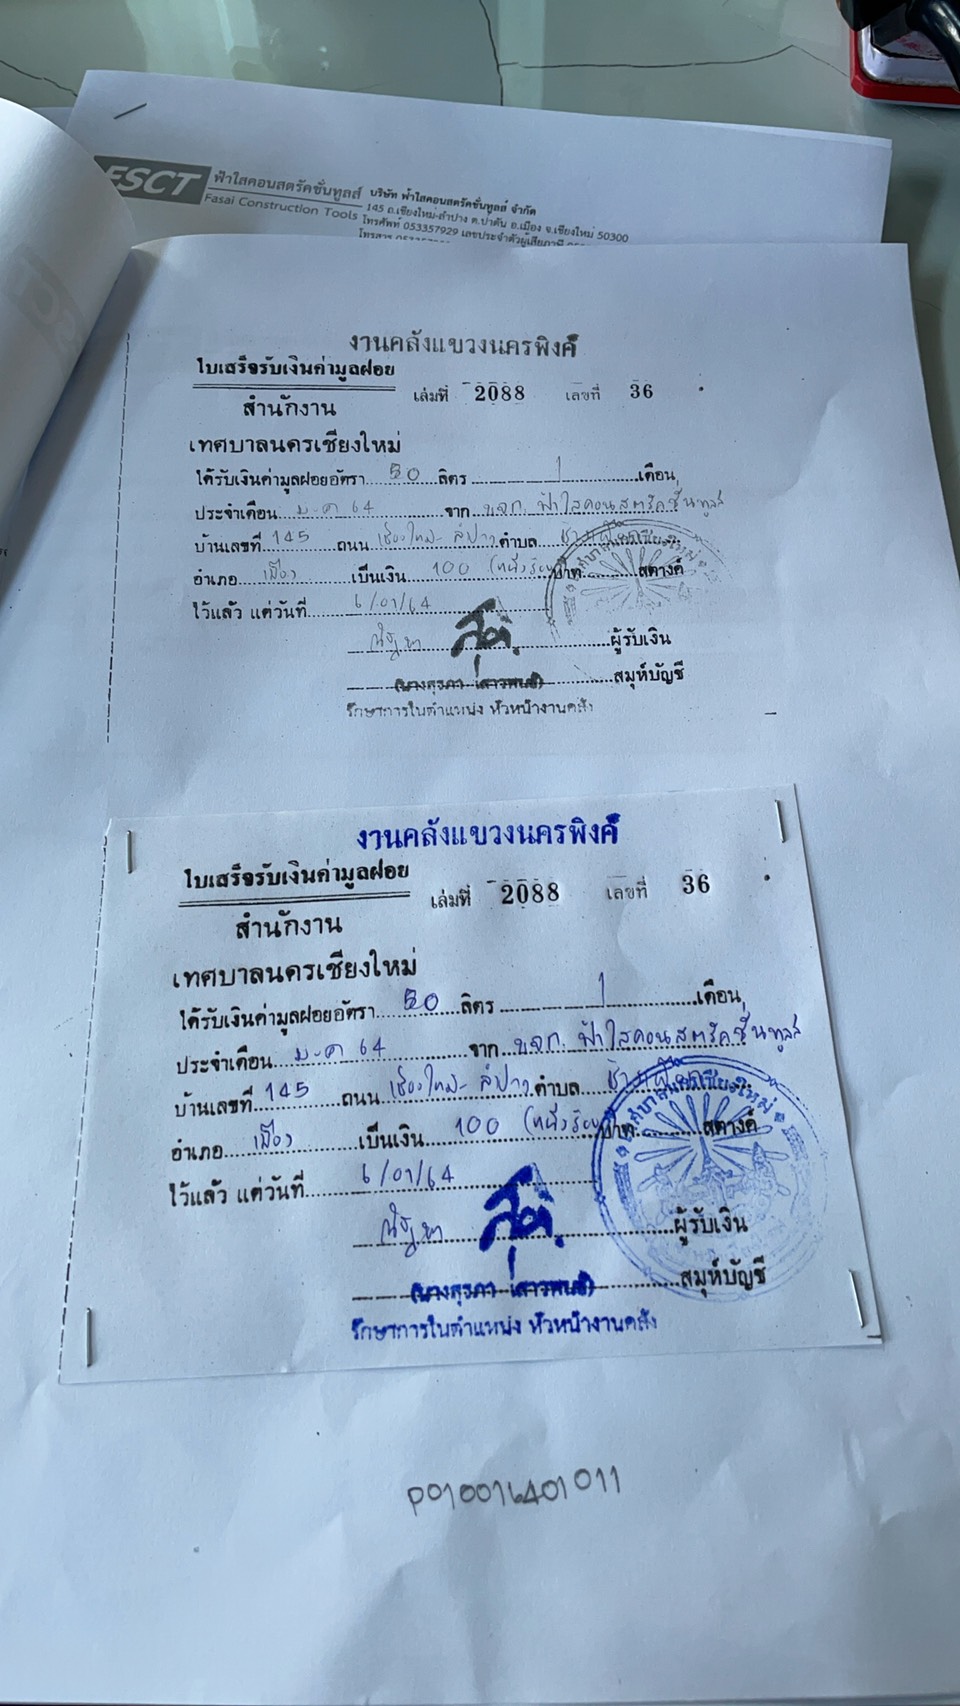 FSCT ฟ้าใสคอนสตรัคชั่นทูลส์ บริษัท ฟ้าใสคอนสตรัคชั่นทูลส์ จำกัด
Fasai Construction Tools 145 ถ.เชียงใหม่-ลำปาง ต.ป่าตัน อ.เมือง จ.เชียงใหม่ 50300
โทรศัพท์ 053357929 เลขประจำตัวผู้เสียภาษี
โทรสาร
งานคลังแขวงนครพิงค์
ใบเสร็จรับเงินค่ามูลฝอย
เล่มที่ 2088 เลขที่ 36
สำนักงาน
เทศบาลนครเชียงใหม่
ได้รับเงินค่ามูลฝอยอัตรา 50 ลิตร 1 เดือน
ประจำเดือน ม.ค 64 จาก บจก. ฟ้าใสคอนสตรัคชั่นทูลส์
บ้านเลขที่ 145 ถนน เชียงใหม่-ลำปาง ตำบล
อำเภอ เมือง เป็นเงิน 100 (หนึ่งร้อย บาท สตางค์
ไว้แล้ว แต่วันที่ 6/01/64
ผู้รับเงิน
สมุห์บัญชี
รักษาการในตำแหน่ง หัวหน้างานคลัง
งานคลังแขวงนครพิงค์
ใบเสร็จรับเงินค่ามูลฝอย
เล่มที่ 2088 เลขที่ 36
สำนักงาน
เทศบาลนครเชียงใหม่
ได้รับเงินค่ามูลฝอยอัตรา 50 ลิตร 1 เดือน
ประจำเดือน ม.ค 64 จาก บจก. ฟ้าใสคอนสตรัคชั่นทูลส์
บ้านเลขที่ 145 ถนน เชียงใหม่-ลำปาง ตำบล
อำเภอ เมือง เป็นเงิน 100 (หนึ่งร้อย บาท สตางค์
ไว้แล้ว แต่วันที่ 6/01/64
ผู้รับเงิน
สมุห์บัญชี
รักษาการในตำแหน่ง หัวหน้างานคลัง
P010016401011